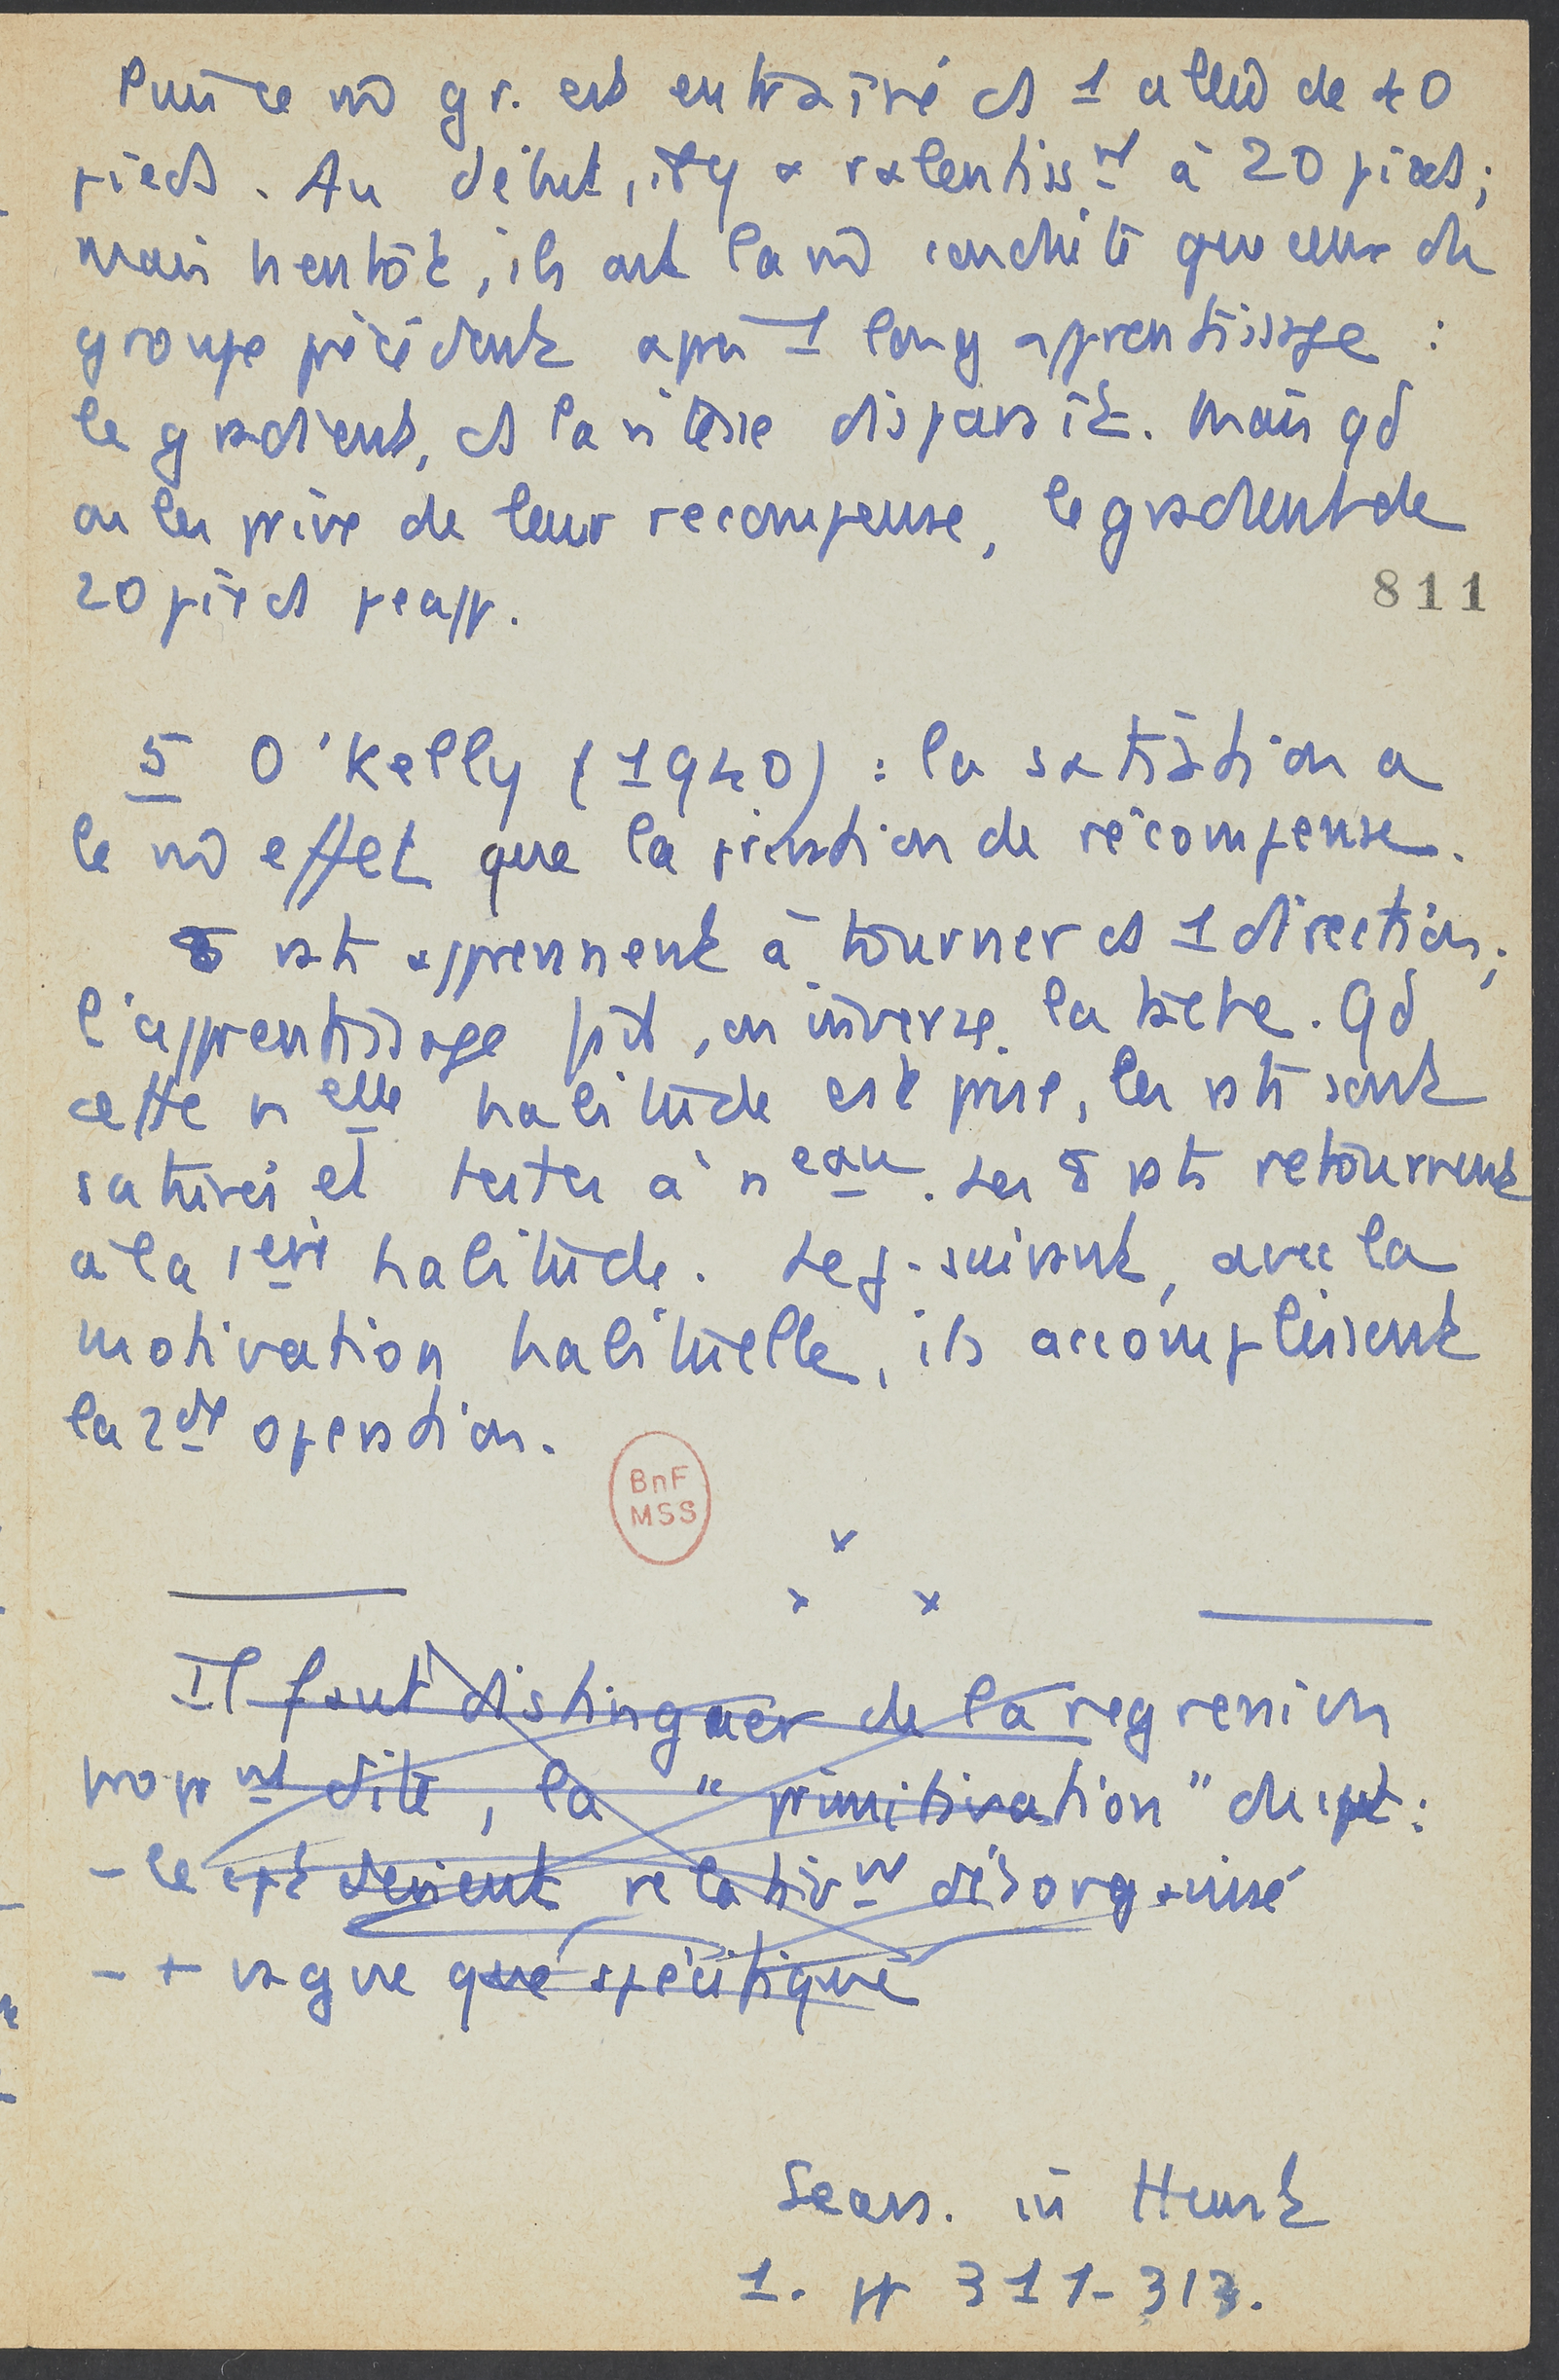 Puis ce m̂ gr. est entraîné ds 1 allée de 40
pieds. Au début, il y a ralentissnt à 20 pieds;
mais bientôt, ils ont la m̂ conduite que ceux du
groupe précédent après 1 long apprentissage :
le gradient, ds la vitesse disparaît. Mais qd
on les prive de leur recompense, le gradient de
20 pieds reapp.
811
5 O'Kelly (1940) : la satiation a
le m̂ effet que la privation de récompense.
8 rats apprennent à tourner ds 1 direction;
l'apprentissage fait, on inverse la tâche. Qd
cette nelle habitude est prise, les rats sont
saturés et testés à neau. Les 8 rats retournent
à la 1ère habitude. Le j. suivant, avec la
motivation habituelle, ils accomplissent
la 2de operation.
BnF
MSS
x
x x
Il faut distinguer de la regression
proprnt dite, la "primitivation" du cpt :
- le cpt devient relativnt désorganisé
- + vague que spécifique
Sears. in Hunt
1. pp 311-313.